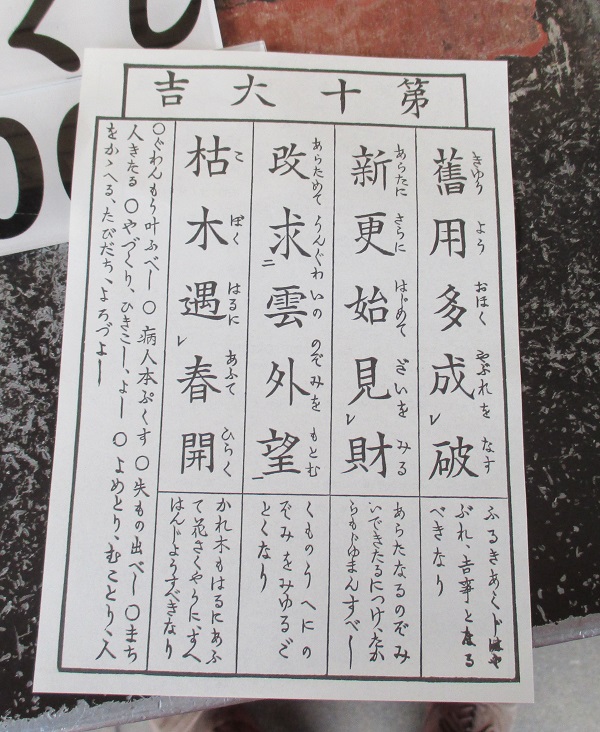 第十大吉
舊用多成レ破
きゆう よう おほく やぶれを なす
ふるきあくじはや
ぶれ、吉事となる
べきなり
新更始見レ財
あらたに さらに はじめて ざいを みる
あらたなるのぞみ
いできたるにつけ、たか
らもじゆまんすべし
改求二雲外望一
あらためて うんぐわいの のぞみを もとむ
くものうへにの
ぞみをみゆるご
とくなり
枯木遇レ春開
こ ぼく はるに あふて ひらく
かれ木もはるにあふ
て花さくやうに、すへ
はんじようすべきなり
〇ぐわんもう叶ふべし 〇病人本ぷくす 〇失もの出べし 〇まち
人きたる 〇やづくり、ひきこし、よし 〇よめとり、むことり、人
をかゝへる、たびだち、よろづよし